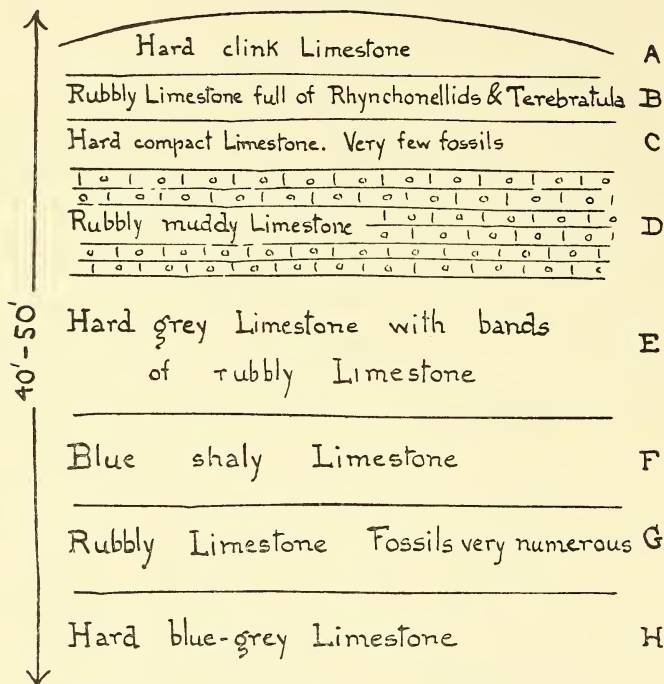 Hard clink Limestone A
Rubbly Limestone full of Rhynchonellids & Terebratula B
Hard compact Limestone. Very few fossils C
Rubbly muddy Limestone D
Hard grey Limestone with bands
of rubbly Limestone E
Blue shaly Limestone F
Rubbly Limestone Fossils very numerous G
Hard blue-grey Limestone H
40'-50'